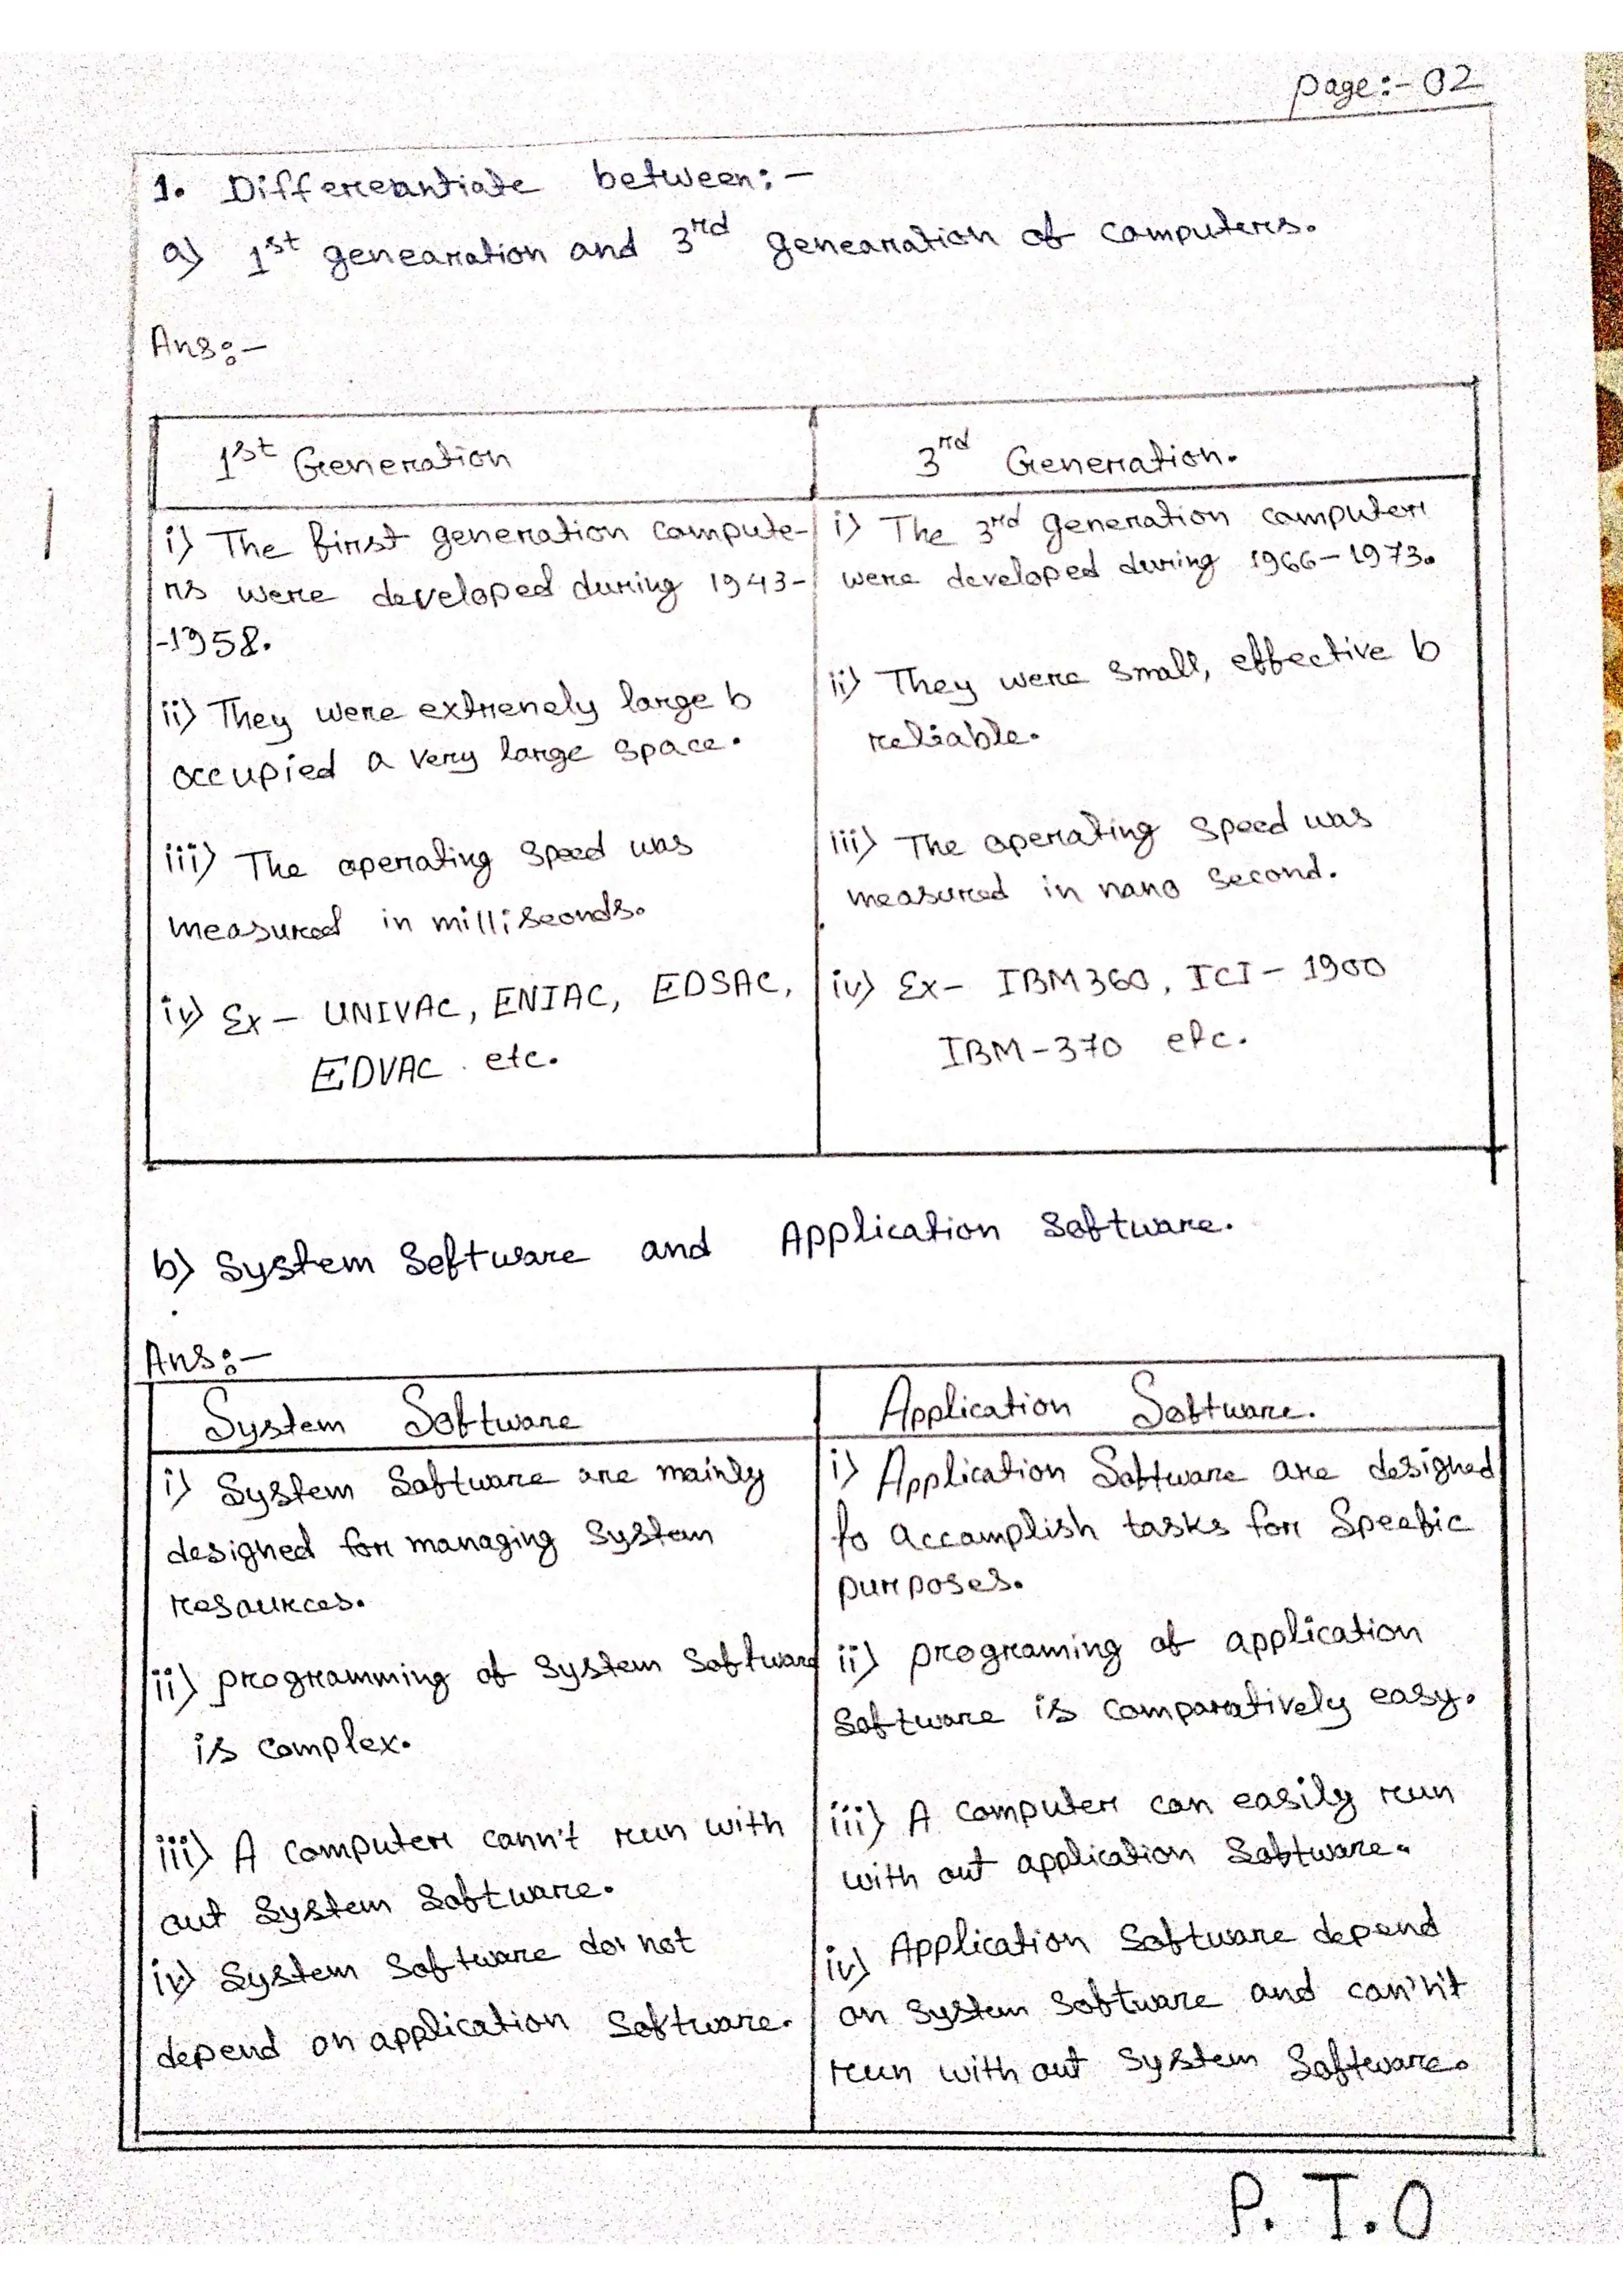 page:- 02
1. Differeantiate between:-
a) 1st genearation and 3rd genearation of computers.
Ans:-
1st Generation
3rd Generation.
i) The first generation compute-
rs were developed during 1943-
-1958.
ii) They were extremely large &
occupied a very large space.
iii) The operating speed was
measured in milliseonds.
iv) Ex - UNIVAC, ENIAC, EDSAC,
EDVAC etc.
i) The 3rd generation computer
were developed during 1966-1973.
ii) They were small, effective &
reliable.
iii) The operating speed was
measured in nano second.
iv) Ex- IBM360, ICI - 1900
IBM-370 etc.
b) System Software and Application Software.
Ans:-
System Software
Application Software.
i) System Software are mainly
designed for managing System
resources.
ii) programming of System Software
is complex.
iii) A computer cann't run with
out System Software.
iv) System Software do not
depend on application Software.
i) Application Software are designed
to accomplish tasks for Specfic
purposes.
ii) programing of application
Software is comparatively easy.
iii) A computer can easily run
with out application Software.
iv) Application Software depend
on System Software and can'n't
run with out System Software.
P. T.O